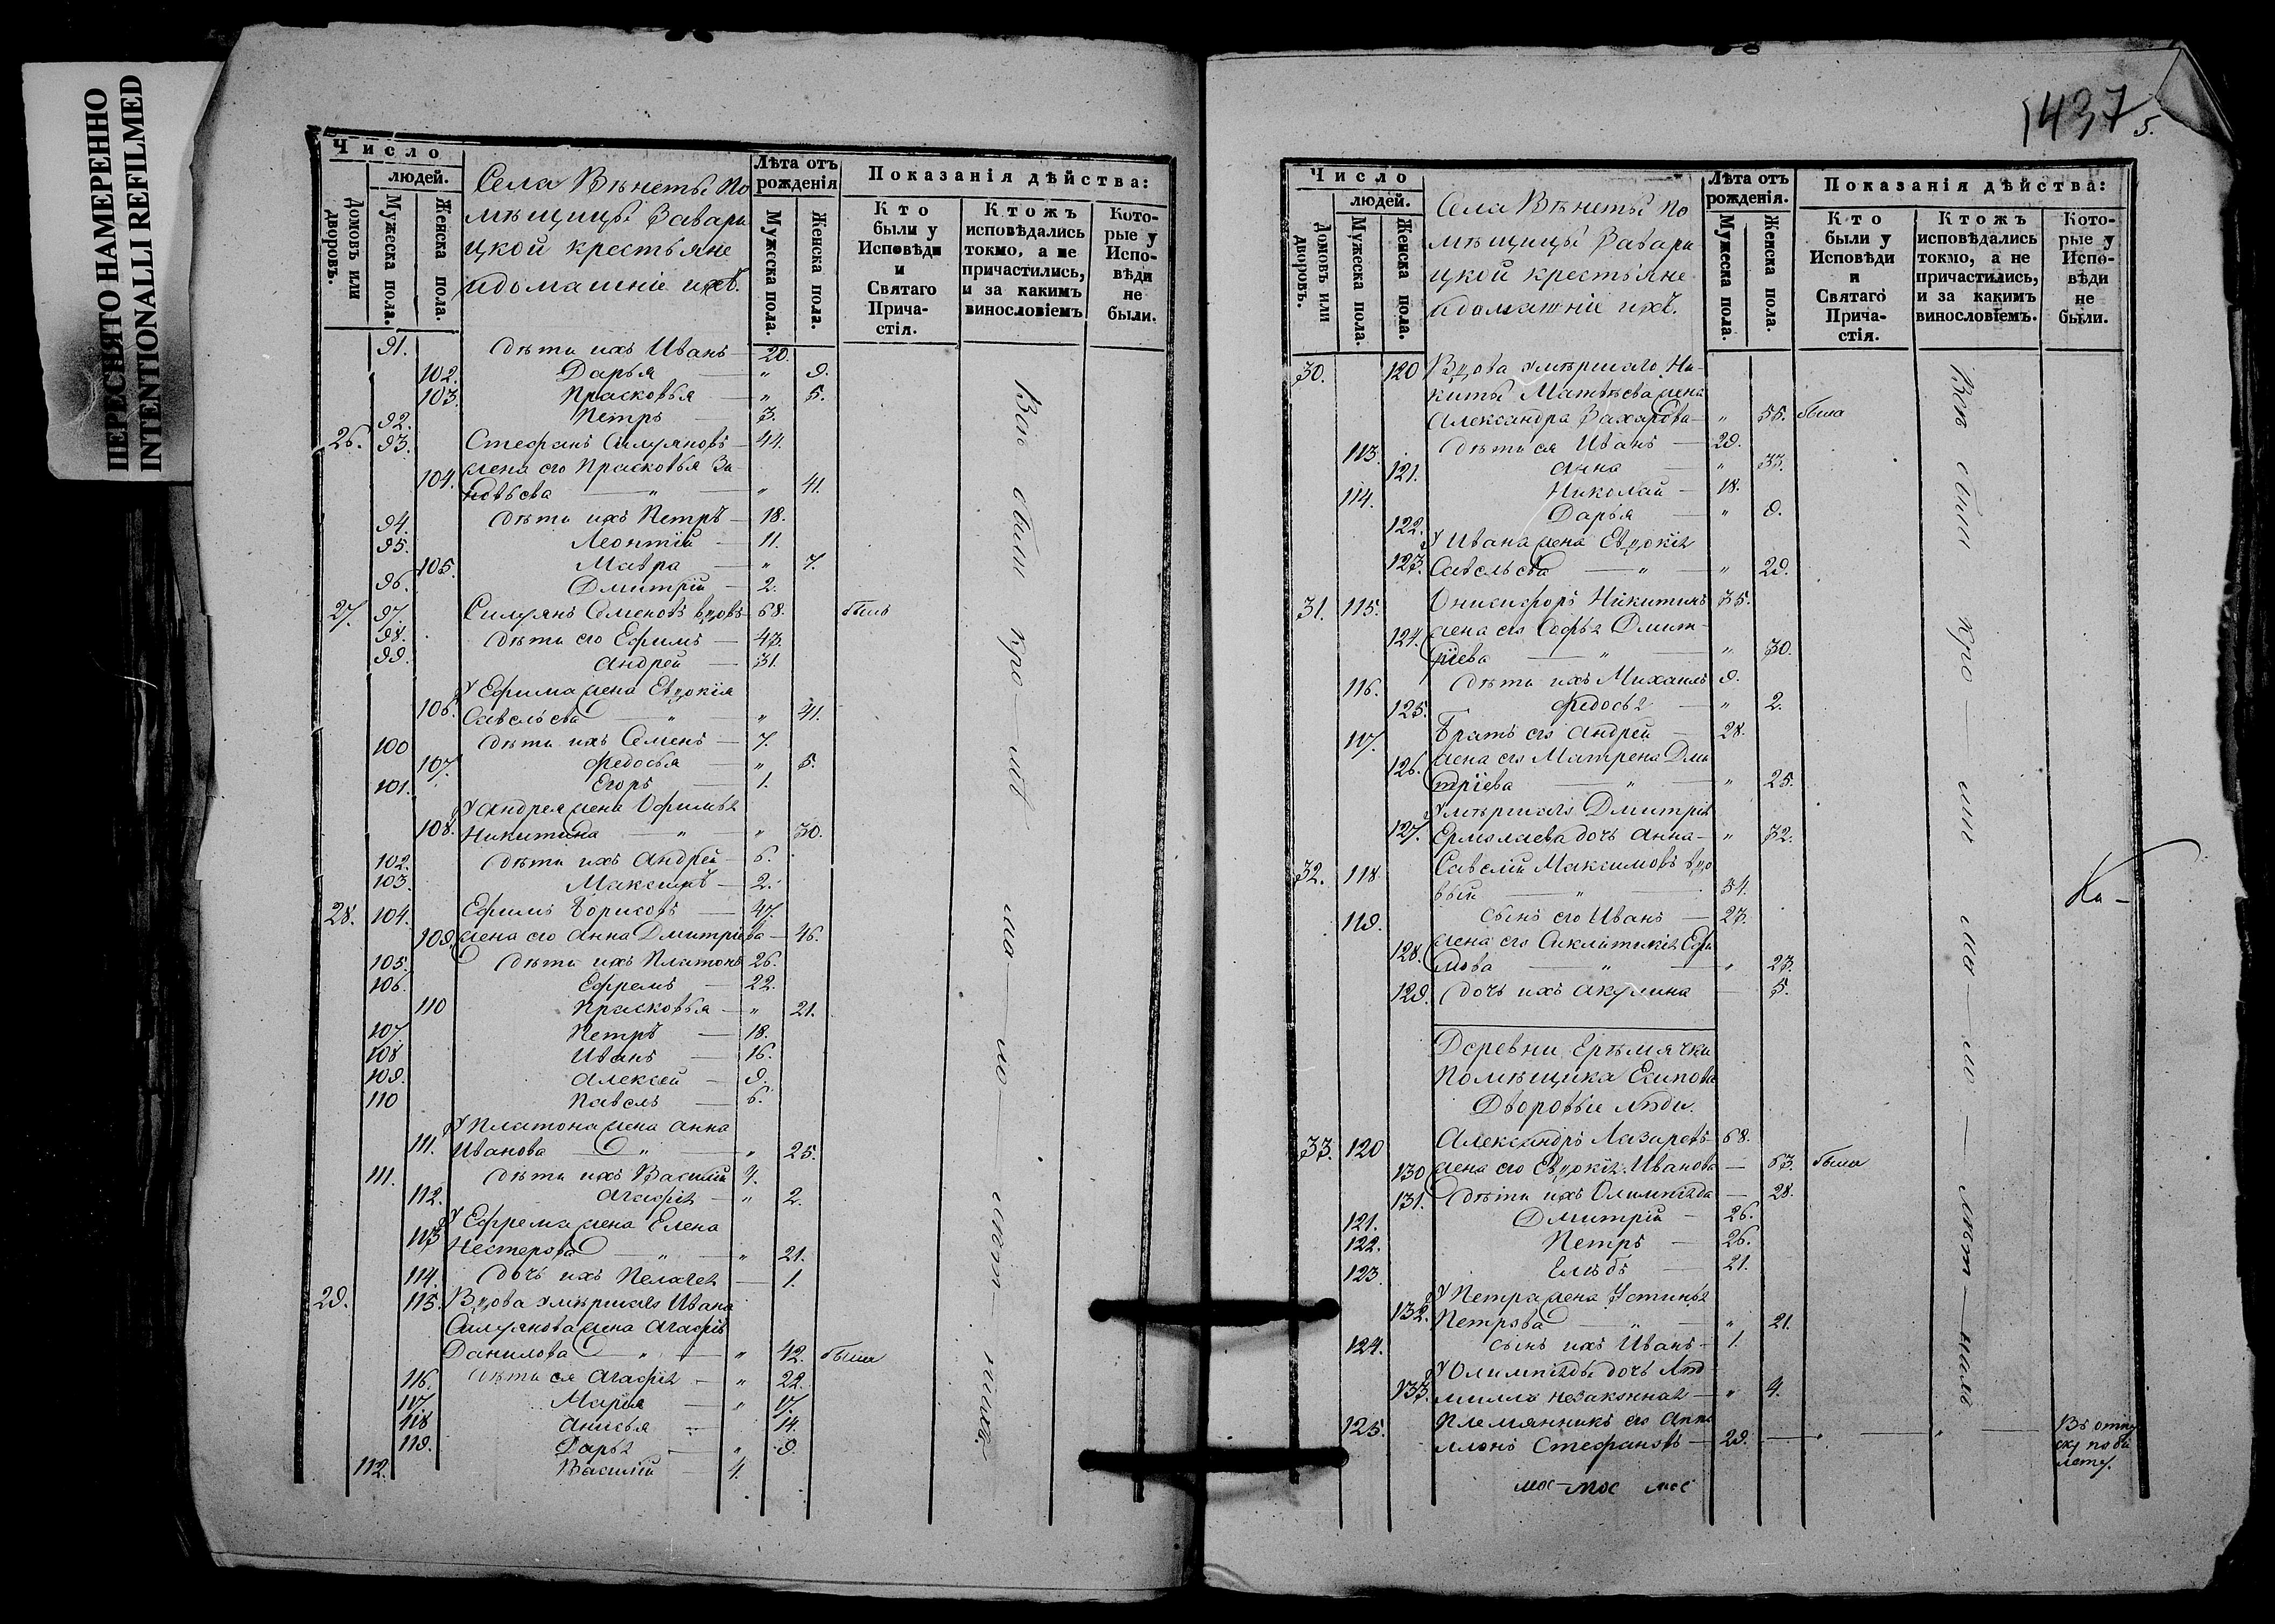 ПЕРЕСНЯТО НАМЕРЕННО
INTENTIONALLI REFILMED
Число
людей.
Домовъ или дворовъ.
Мужеска пола.
Женска пола.
Села Вѣнеты по
мѣщицы Завари
цкой крестьяне
и домашніе ихъ.
Лѣта отъ рожденія
Мужеска пола.
Женска пола.
Показанія дѣйства:
Кто были у Исповѣди и Святаго Причастія.
Ктожъ исповѣдались токмо, а не причастились, и за какимъ винословіемъ
Которые у Исповѣди не были.
91. дѣти ихъ Иванъ — 20.
102. Дарья — " 9.
103. Прасковья — " 5.
92. Петръ — 3.
26. 93. Стефанъ Силуяновъ — 44.
104. жена его Прасковья Зи
новьева — " — " 41.
94. дѣти ихъ Петръ — 18.
95. Леонтій — 11.
105. Мавра — " 7.
96. Дмитрій — 2.
27. 97. Силуянъ Семеновъ вдовъ 68. былъ
98. дѣти его Ефимъ — 43.
99. Андрей — 31.
У Ефима жена Евдокія
106. Савельева — " — " 41.
100 дѣти ихъ Семенъ — 7.
107. Федосья — " 5.
101. Егоръ — 1.
У Андрея жена Офимья
108. Никитина — " — " 30.
102. дѣти ихъ Андрей — 6.
103. Максимъ — 2.
28. 104. Ефимъ Борисовъ — 47.
109. жена его Анна Дмитріева — 46.
105. дѣти ихъ Платонъ 26.
106. Ефремъ — 22.
110 Прасковья — " 21.
107. Петръ — 18.
108 Иванъ — 16.
109. Алексей — 9.
110 Павелъ — 6.
У Платона жена Анна
111. Иванова — " — " 25.
111. дѣти ихъ Василій 4.
112. Агафія — " 2.
У Ефрема жена Елена
113 Нестерова — " — " 21.
114. дочь ихъ Пелагея — 1.
29. 115. Вдова умѣршаго Ивана
Силуянова жена Агафія
Данилова — " — " 42. была
116. дѣти ея Агафія — " 22.
117. Марія — " 17.
118 Анисья — 14.
119. Дарья — " 9.
112. Василій — 4.
Всѣ были
1437
5.
Число
людей.
Домовъ или дворовъ.
Мужеска пола.
Женска пола.
Села Вѣнеты по
мѣщицы Завари
цкой крестьяне
и домашніе ихъ.
Лѣта отъ рожденія.
Мужеска пола.
Женска пола.
Показанія дѣйства:
Кто были у Исповѣди и Святаго Причастія.
Ктожъ исповѣдались токмо, а не причастились, и за какимъ винословіемъ.
Которые у Исповѣди не были.
30. 120 Вдова умѣршаго Ни-
киты Матвѣева жена
Александра Захарова — " 55. была
113. дѣти ея Иванъ — 29.
121. Анна — " 33.
114. Николай — 18.
122. Дарья — " 9.
У Ивана жена Евдокія
123. Савельева — " — " 29.
31. 115. Онисифоръ Никитинъ 35.
124. жена его Софья Дмит-
ріева — " — " 30.
116. дѣти ихъ Михаилъ 9.
125. Федосья — " 2.
117. Братъ его Андрей — 28.
126. жена его Матрена Дми
тріева — " — " 25.
Умѣршаго Дмитрія
127. Ермолаева дочь Анна — " 32.
32. 118 Савелій Максимовъ вдо
вый — " — 54.
119. сынъ его Иванъ — 23.
128. жена его Сиклитикія Ефи
мова — " — " 23.
129. дочь ихъ Акулина — 5.
Деревни Ерѣмячки
Помѣщика Есипова
Дворовые люди.
33. 120 Александръ Лазаревъ 68.
130 жена его Евдокія Иванова — 63. была
131. дѣти ихъ Олимпіада — 28.
121. Дмитрій — 26.
122. Петръ — 26.
123. Глѣбъ — 21.
У Петра жена Устинья
132. Петрова — " — " 21.
124. сынъ ихъ Иванъ — 1.
У Олимпіады дочь Люд
133. милла незаконная — " 4.
125. Племянникъ его Апол
лонъ Стефановъ — 29. — " — " — Въ отпу
ску по би
лету.
Всѣ были
Ка-